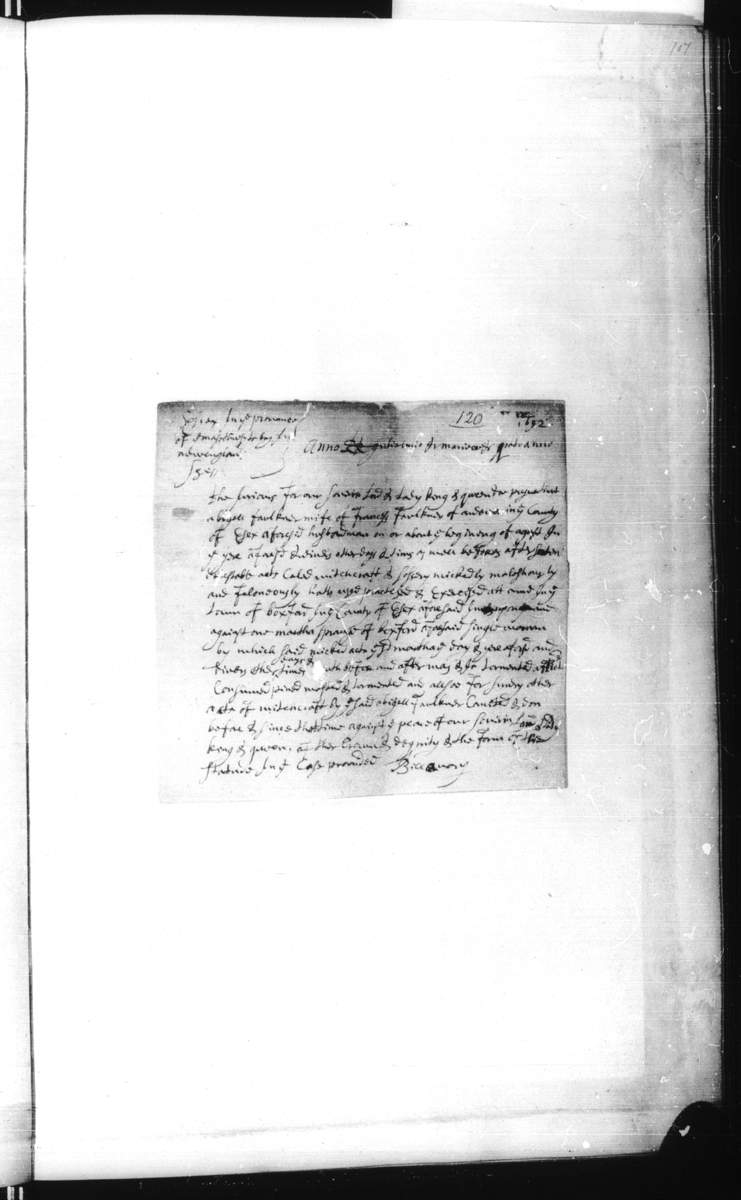 117
120
1692
Essex In ye province
of the massachusetts bay In
newengland
Ss
Anno Gulielmi & mariae &c quarto Anno
The Jurors for our Soverin Lord & Lady King & queen doe present that
abigell Faulkner wife of Francis Faulkner of andover in ye County
of Essex aforesd husbandman on or about ye begining of agust In
ye yere aforesd & divers other days & times as well before as after
detestable arts Caled witchcraft & Sosery wickedly malishously
and faloneously hath used practised & Exercised att and in ye
town of boxford In ye County of Essex aforesaid
against one martha Sprague of boxford aforesaid Single woman
by which said wicked acts ye sd martha ye day & yere aforesd and
divers other days & times both before and after was & is tormented
Consumed pined wasted & tormented and allsoe for sundry other
acts of witchcraft by ye said abigell Faulkner Comited & don
before & since that time against ye peace of our Soverin Lord & Lady
King & queen, & ther Crown & dignity & the form of the
Statute In ye Case provided Billa vera